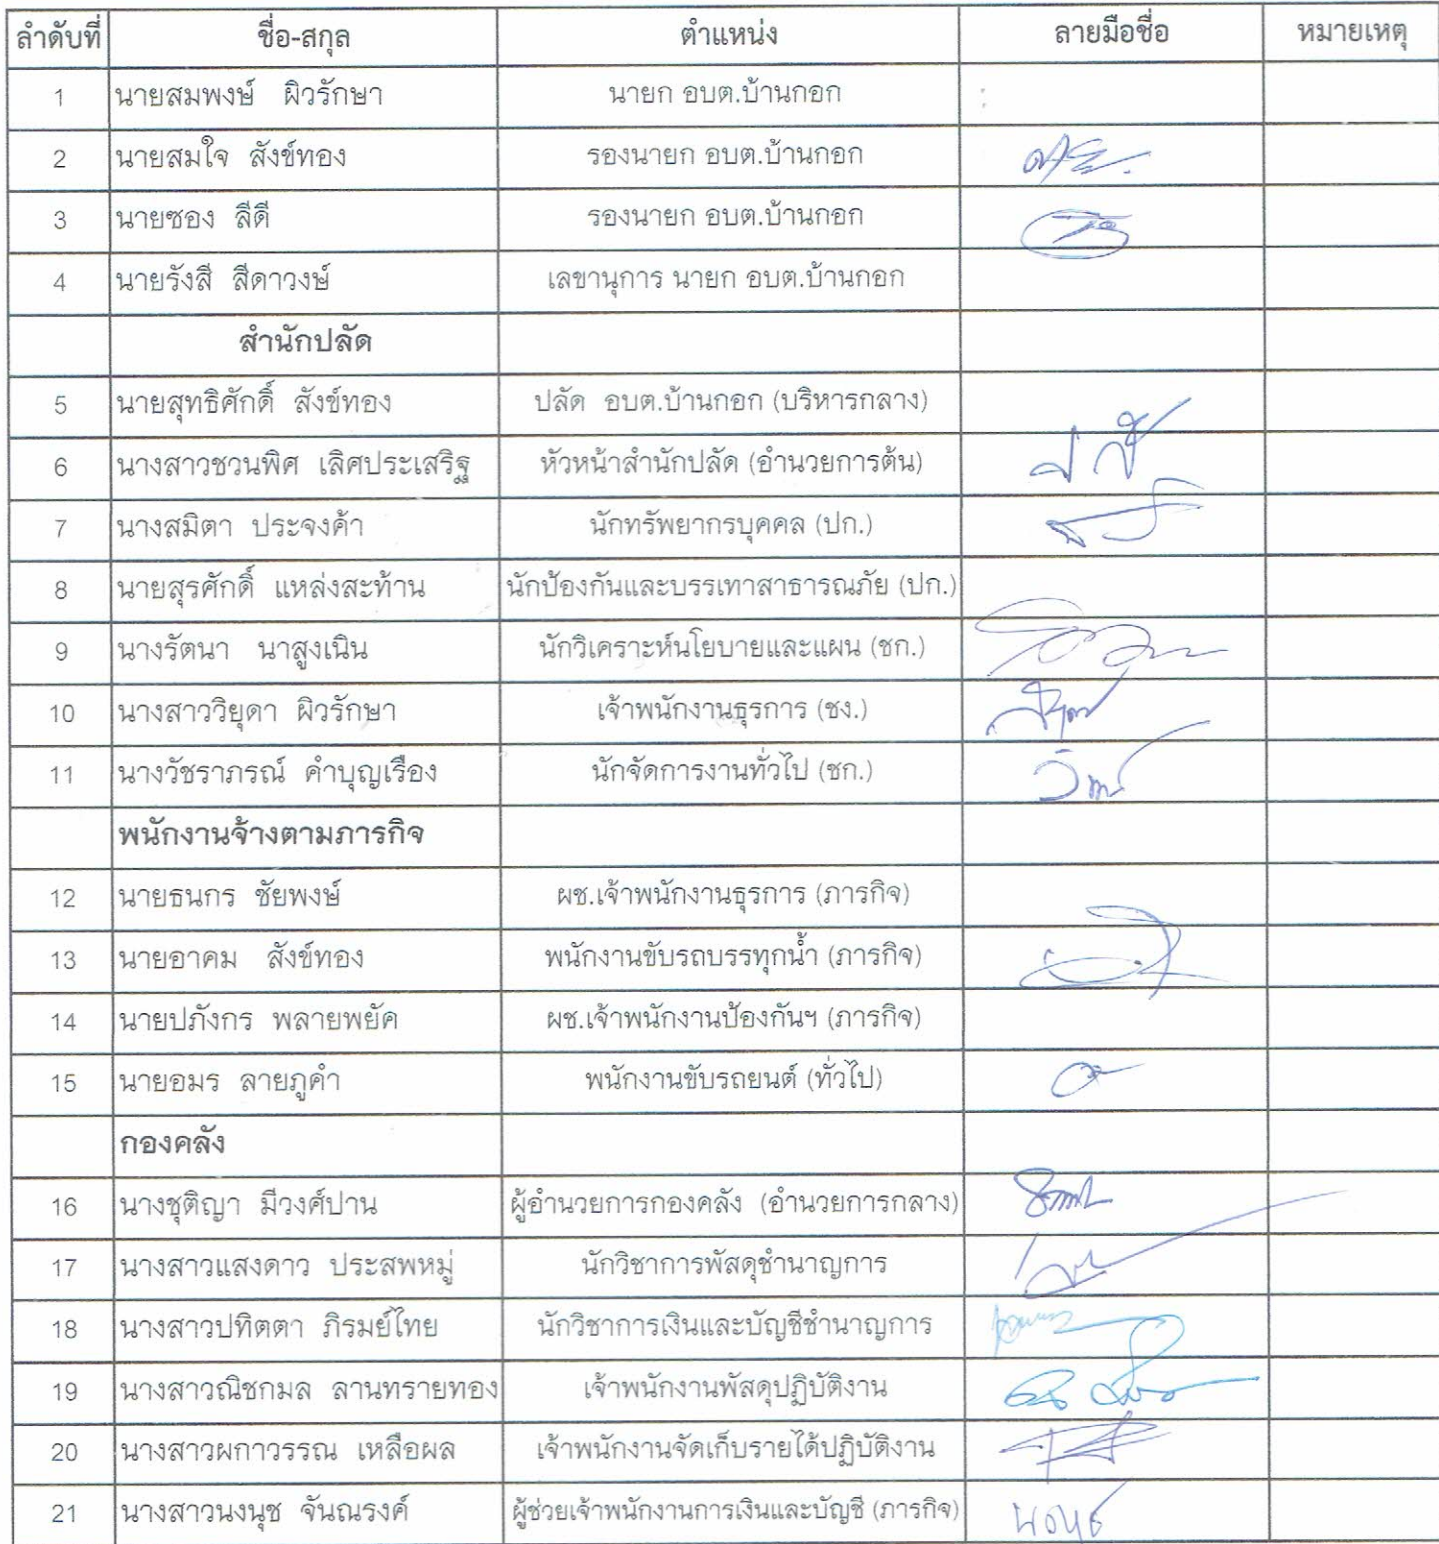 ลำดับที่ ชื่อ-สกุล ตำแหน่ง ลายมือชื่อ หมายเหตุ
1 นายสมพงษ์ ผิวรักษา นายก อบต.บ้านกอก
2 นายสมใจ สังข์ทอง รองนายก อบต.บ้านกอก
3 นายซอง ลีดี รองนายก อบต.บ้านกอก
4 นายรังสี สีดาวงษ์ เลขานุการ นายก อบต.บ้านกอก
สำนักปลัด
5 นายสุทธิศักดิ์ สังข์ทอง ปลัด อบต.บ้านกอก (บริหารกลาง)
6 นางสาวชวนพิศ เลิศประเสริฐ หัวหน้าสำนักปลัด (อำนวยการต้น)
7 นางสมิตา ประจงค้า นักทรัพยากรบุคคล (ปก.)
8 นายสุรศักดิ์ แหล่งสะท้าน นักป้องกันและบรรเทาสาธารณภัย (ปก.)
9 นางรัตนา นาสูงเนิน นักวิเคราะห์นโยบายและแผน (ชก.)
10 นางสาววิยุดา ผิวรักษา เจ้าพนักงานธุรการ (ชง.)
11 นางวัชราภรณ์ คำบุญเรือง นักจัดการงานทั่วไป (ชก.)
พนักงานจ้างตามภารกิจ
12 นายธนกร ชัยพงษ์ ผช.เจ้าพนักงานธุรการ (ภารกิจ)
13 นายอาคม สังข์ทอง พนักงานขับรถบรรทุกน้ำ (ภารกิจ)
14 นายปภังกร พลายพยัค ผช.เจ้าพนักงานป้องกันฯ (ภารกิจ)
15 นายอมร ลายภูคำ พนักงานขับรถยนต์ (ทั่วไป)
กองคลัง
16 นางชุติญา มีวงศ์ปาน ผู้อำนวยการกองคลัง (อำนวยการกลาง)
17 นางสาวแสงดาว ประสพหมู่ นักวิชาการพัสดุชำนาญการ
18 นางสาวปทิตตา ภิรมย์ไทย นักวิชาการเงินและบัญชีชำนาญการ
19 นางสาวณิชกมล ลานทรายทอง เจ้าพนักงานพัสดุปฏิบัติงาน
20 นางสาวผกาวรรณ เหลือผล เจ้าพนักงานจัดเก็บรายได้ปฏิบัติงาน
21 นางสาวนงนุช จันณรงค์ ผู้ช่วยเจ้าพนักงานการเงินและบัญชี (ภารกิจ)